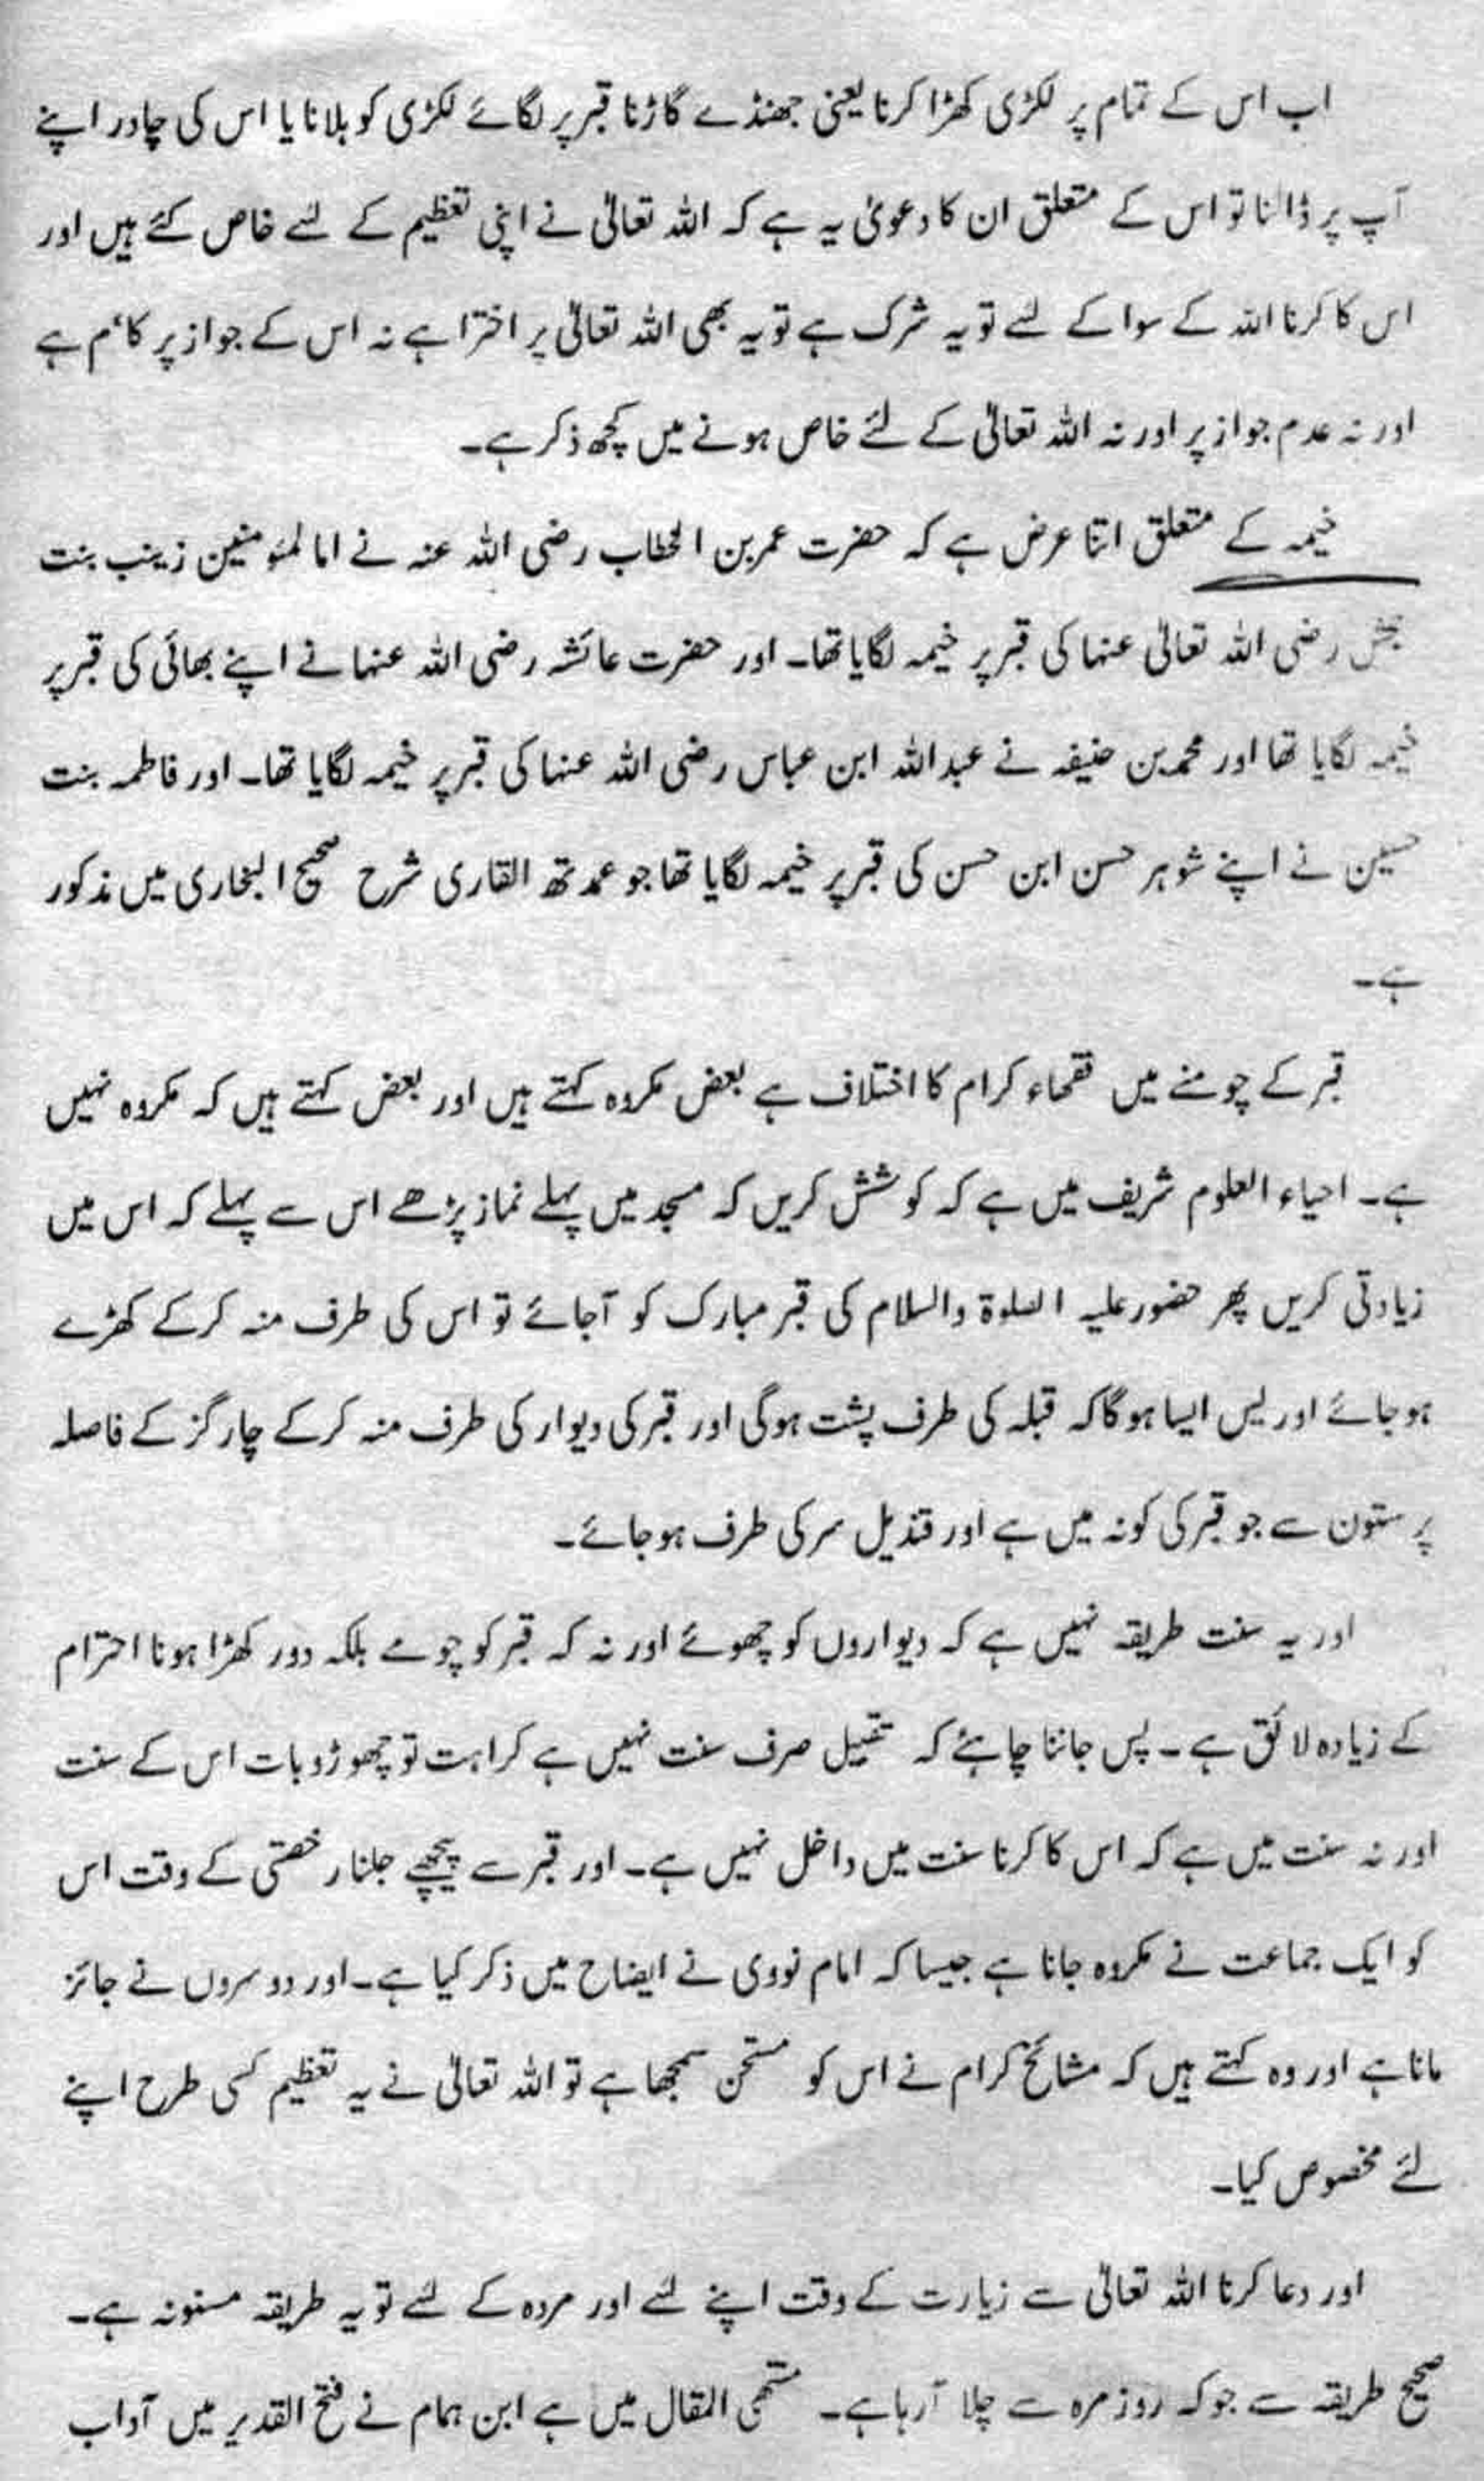 اب اس کے تمام پر لکڑی کھڑا کرنا یعنی جھنڈے گاڑنا قبر پر لگائے لکڑی کو ہلانا یا اس کی چادر اپنے
آپ پر ڈالنا تو اس کے متعلق ان کا دعویٰ یہ ہے کہ اللہ تعالیٰ نے اپنی تعظیم کے لئے خاص کئے ہیں اور
اس کا کرنا اللہ کے سوا کے لئے تو یہ شرک ہے تو یہ بھی اللہ تعالیٰ پر اخترا ہے نہ اس کے جواز پر ہے
اور نہ عدم جواز پر اور نہ اللہ تعالیٰ کے لئے خاص ہونے میں کچھ ذکر ہے۔
خیمہ کے متعلق اتنا عرض ہے کہ حضرت عمر بن الخطاب رضی اللہ عنہ نے ام المئومنین زینب بنت
رضی اللہ تعالیٰ عنہا کی قبر پر خیمہ لگایا تھا۔ اور حضرت عائشہ رضی اللہ عنہا نے اپنے بھائی کی قبر پر
خیمہ لگایا تھا اور محمد بن حنیفہ نے عبداللہ ابن عباس رضی اللہ عنہا کی قبر پر خیمہ لگایا تھا۔ اور فاطمہ بنت
حسین نے اپنے شوہر حسن ابن حسن کی قبر پر خیمہ لگایا تھا جو عمدتھ القاری شرح صحیح البخاری میں مذکور
ہے۔
قبر کے چومنے میں فقھاء کرام کا اختلاف ہے بعض مکروہ کہتے ہیں اور بعض کہتے ہیں کہ مکروہ نہیں
ہے۔ احیاء العلوم شریف میں ہے کہ کوشش کریں کہ مسجد میں پہلے نماز پڑھے اس سے پہلے کہ اس میں
زیادتی کریں پھر حضور علیہ الصلوۃ والسلام کی قبر مبارک کو آجائے تو اس کی طرف منہ کرکے کھڑے
ہوجائے اور پس ایسا ہوگا کہ قبلہ کی طرف پشت ہوگی اور قبر کی دیوار کی طرف منہ کرکے چار گز کے فاصلہ
پر ستون سے جو قبر کی کونہ میں ہے اور قندیل سر کی طرف ہوجائے۔
اور یہ سنت طریقہ نہیں ہے کہ دیواروں کو چھوئے اور نہ کہ قبر کو چومے بلکہ دور کھڑا ہونا احترام
کے زیادہ لائق ہے۔ پس جاننا چاہئے کہ تقبیل صرف سنت نہیں ہے کراہت تو چھوڑو بات اس کے سنت
اور نہ سنت میں ہے کہ اس کا کرنا سنت میں داخل نہیں ہے۔ اور قبر سے پیچھے چلنا رخصتی کے وقت اس
کو ایک جماعت نے مکروہ جانا ہے جیسا کہ امام نووی نے ایضاح میں ذکر کیا ہے۔ اور دوسروں نے جائز
مانا ہے اور وہ کہتے ہیں کہ مشائخ کرام نے اس کو مستحن سمجھا ہے تو اللہ تعالیٰ نے یہ تعظیم کسی طرح اپنے
لئے مخصوص کیا۔
اور دعا کرنا اللہ تعالیٰ سے زیارت کے وقت اپنے لئے اور مردہ کے لئے تو یہ طریقہ مسنونہ ہے۔
صحیح طریقہ سے جو کہ روز مرہ سے چلا آرہا ہے۔ منتھی المقال میں ہے ابن ہمام نے فتح القدیر میں آداب